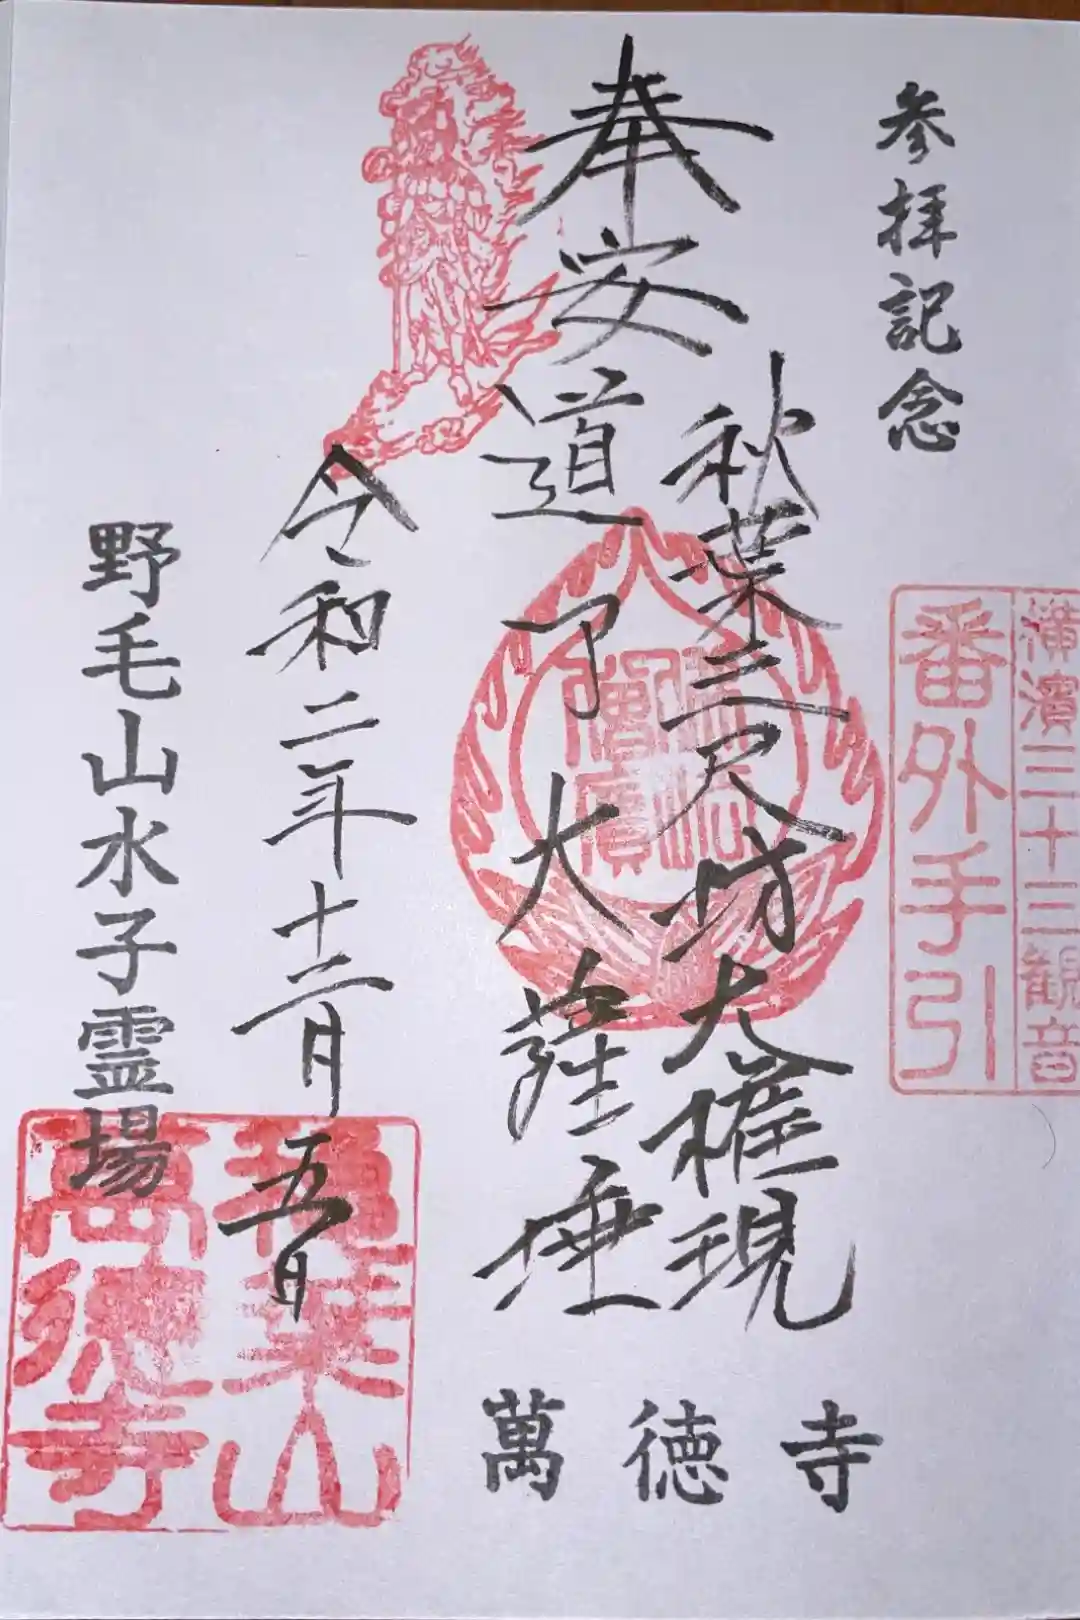 参拝記念
横濱三十三観音
番外手引
奉安
秋葉三尺坊大権現
道了大薩埵
令和二年十二月五日
野毛山水子霊場
秋葉山
萬徳寺
萬徳寺